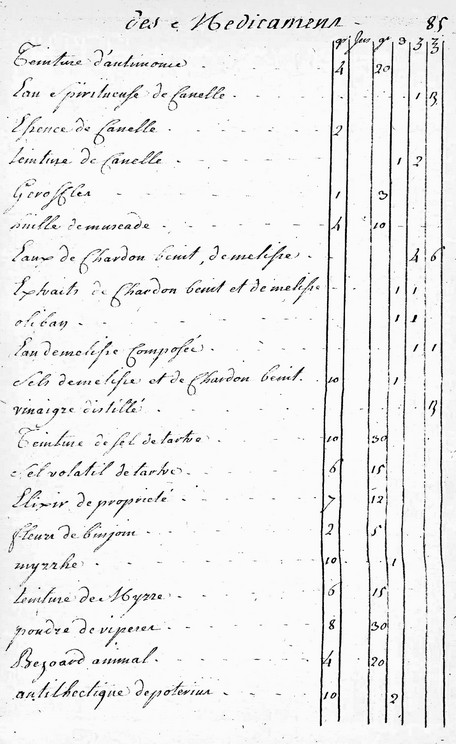 des Medicamens 85
gr Jus gr ℈ ʒ ℥
Teinture d'antimoine 4 20
Eau Spiritueuse de Canelle 1 ß
Essence de Canelle 2
teinture de Canelle 1 2
Gerofles 1 3
huille de muscade 4 10
Eaux de Chardon benit, de melisse 4 6
Extraits de Chardon benit et de melisse 1 1
oliban 1 1
Eau de melisse Composée 1 1
Sels de melisse et de Chardon benit 10 1
vinaigre distillé ß
Teinture de sel de tartre 10 30
Sel volatil de tartre 6 15
Elixir de proprieté 7 12
fleurs de binjoin 2 5
myrrhe 10 1
teinture de Myrre 6 15
poudre de viperes 8 30
Bezoard animal 4 20
antilhectique de poterius 10 2